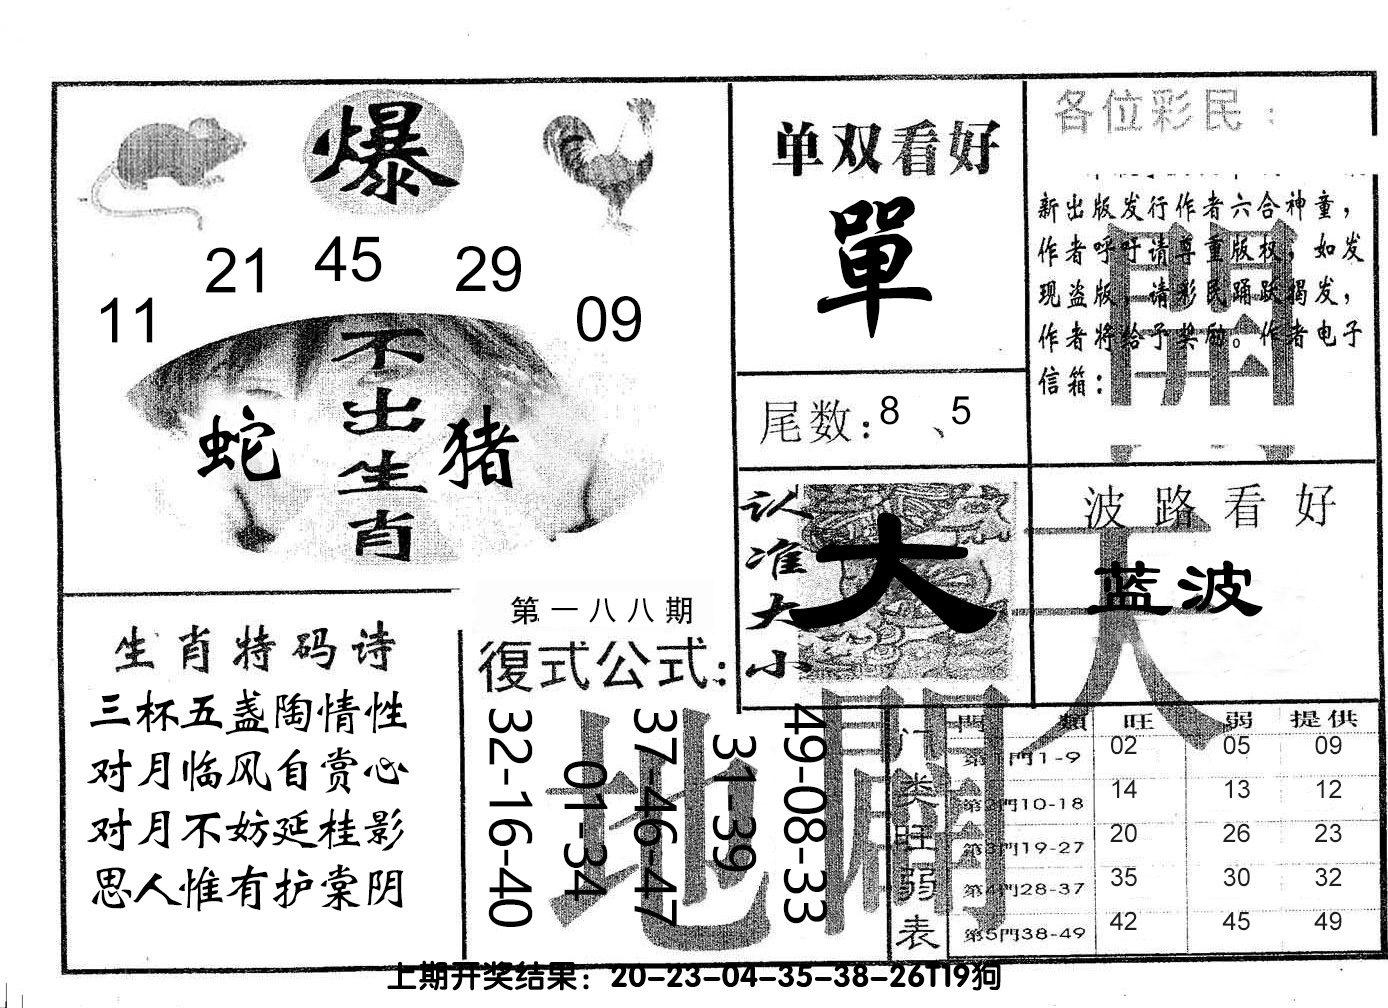 爆
21 45 29
11 09
不出生肖
蛇 猪
单双看好
單
尾数:8、5
各位彩民:
新出版发行作者六合神童，
作者呼吁请尊重版权，如发
现盗版，请彩民踊跃揭发，
作者将给予奖励。作者电子
信箱:
認准大小
大
波路看好
蓝波
天
開
地
生肖特码诗
三杯五盏陶情性
对月临风自赏心
对月不妨延桂影
思人惟有护棠阴
第一八八期
復式公式:
32-16-40
01-34
37-46-47
31-39
49-08-33
门类旺弱表
門類 旺 弱 提供
第1門1-9 02 05 09
第2門10-18 14 13 12
第3門19-27 20 26 23
第4門28-37 35 30 32
第5門38-49 42 45 49
上期开奖结果：20-23-04-35-38-26T19狗